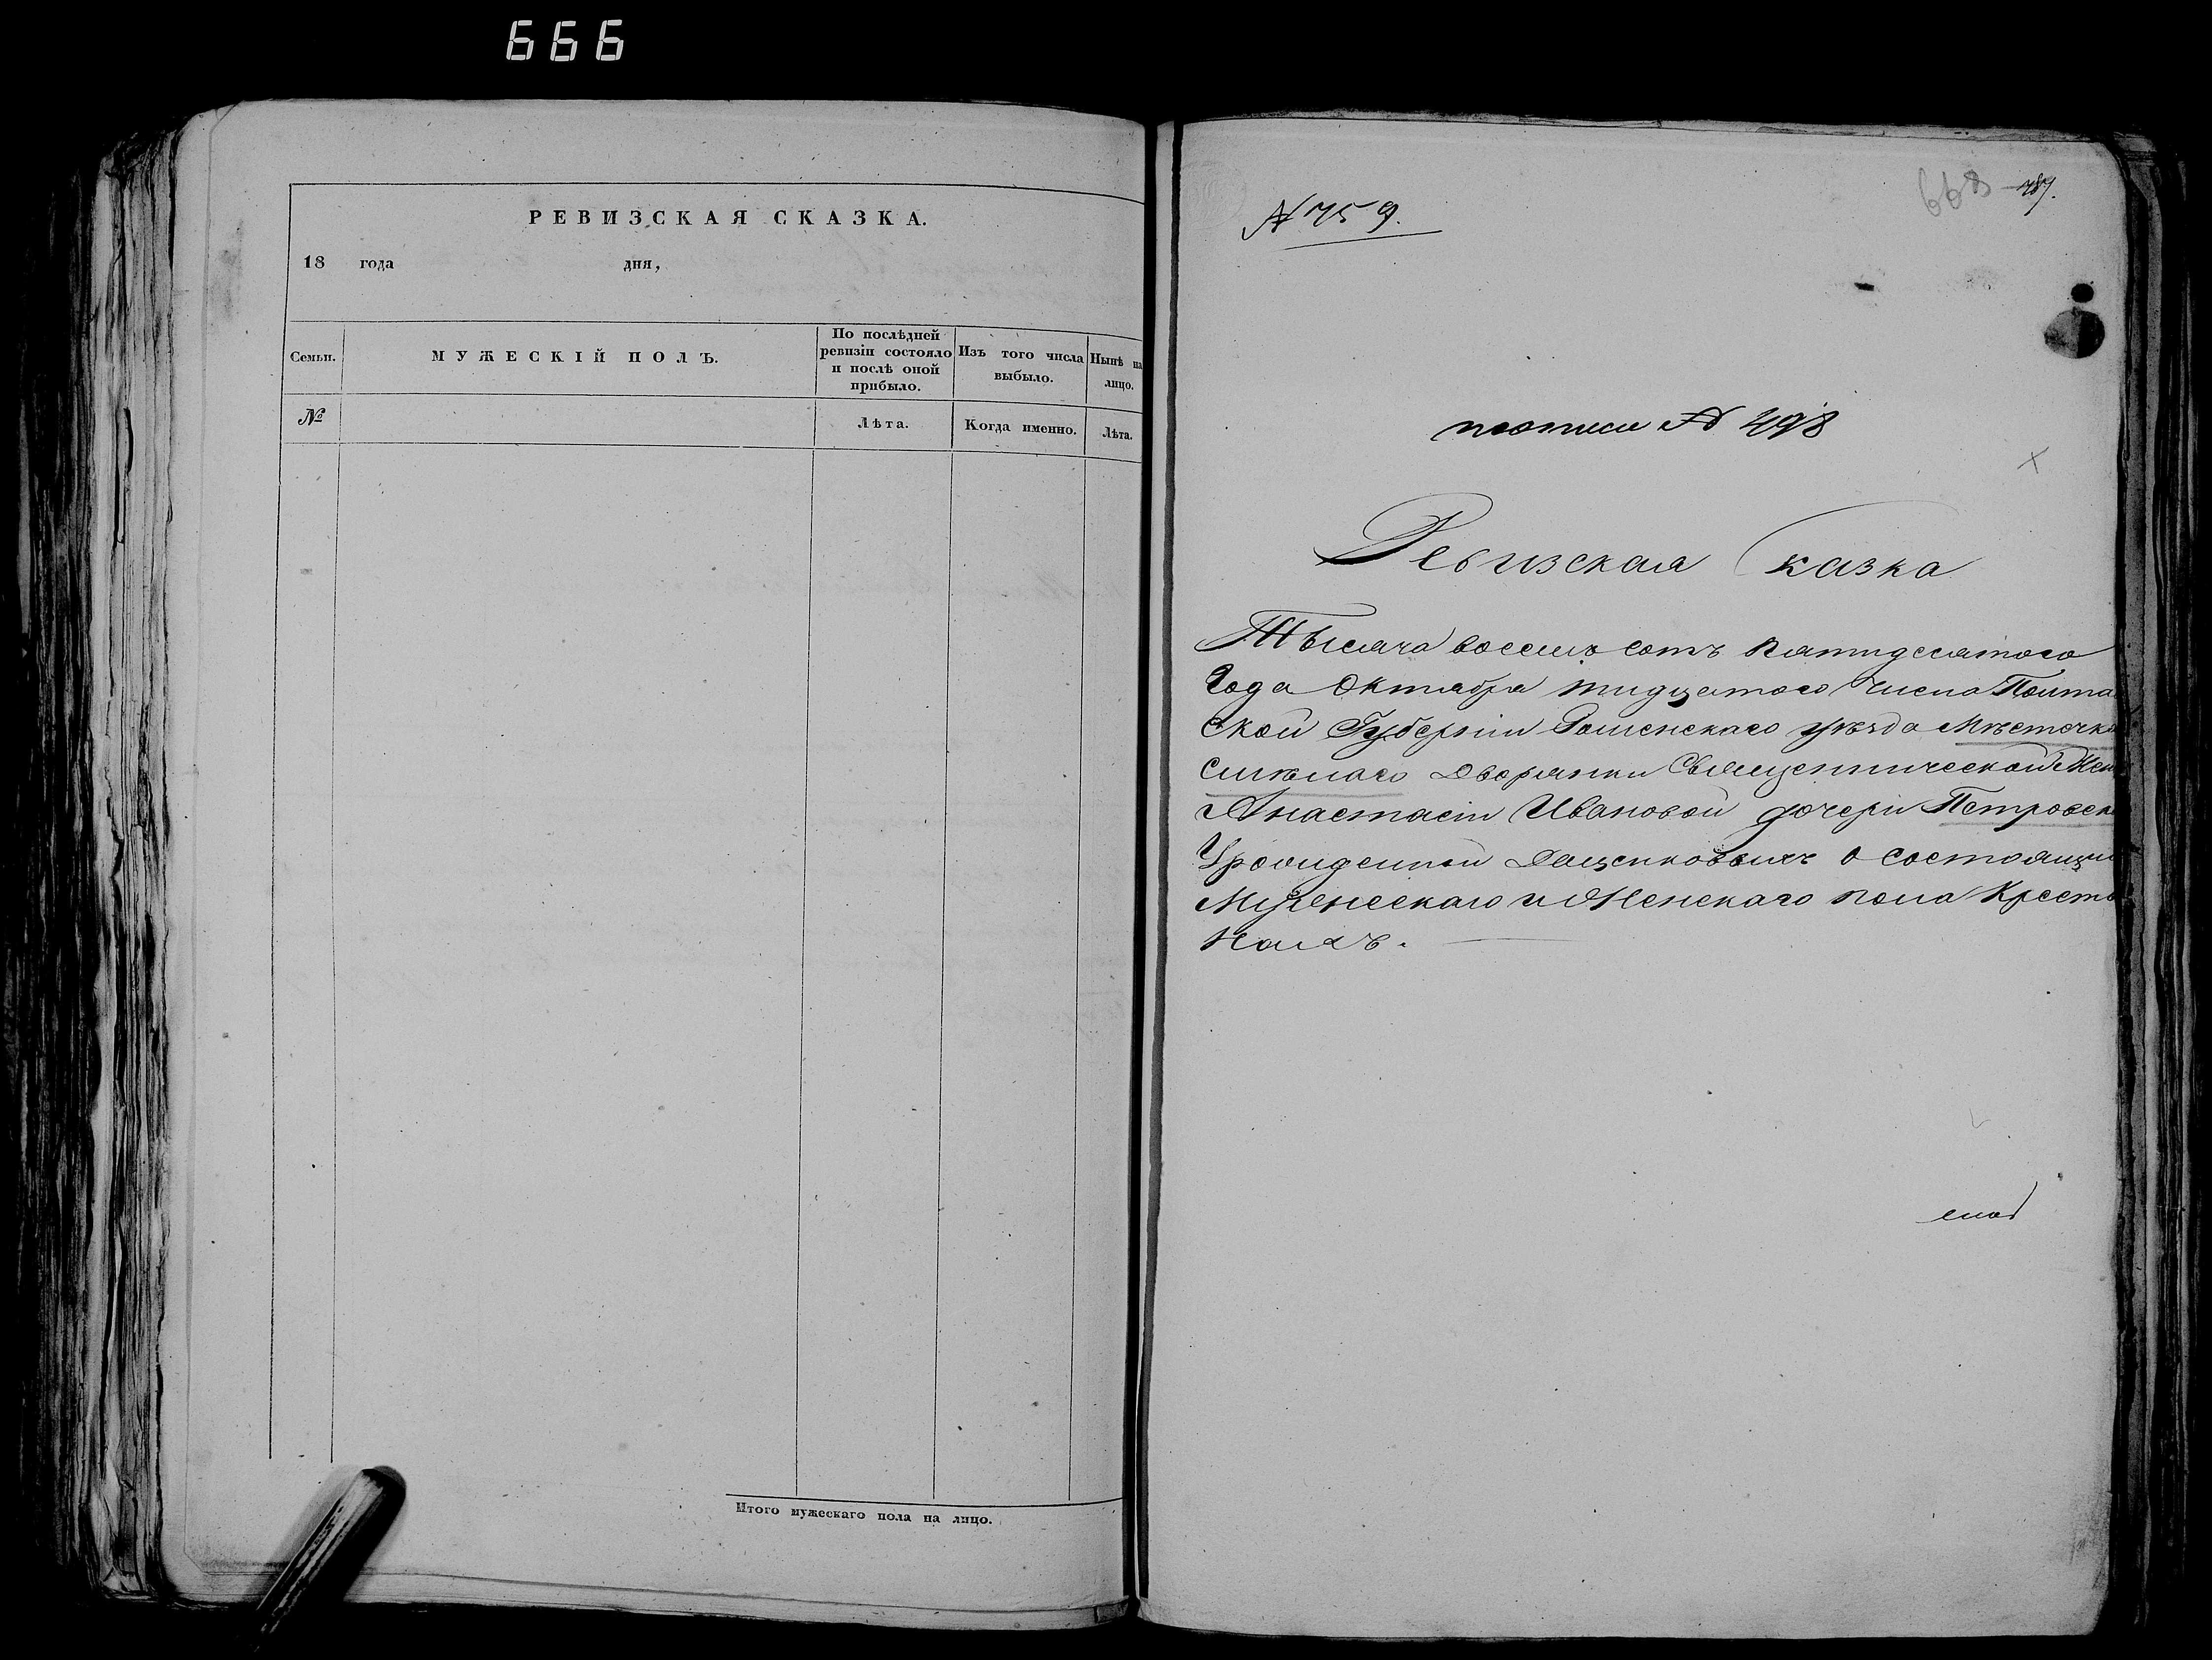 666
РЕВИЗСКАЯ СКАЗКА.
18 года дня,
Семьи.
МУЖЕСКІЙ ПОЛЪ.
По послѣдней
ревизіи состояло
и послѣ оной
прибыло.
Изъ того числа
выбыло.
Нынѣ на
лицо.
№
Лѣта.
Когда именно.
Лѣта.
Итого мужескаго пола на лицо.
668
N 759.
пописи N 498
Ревизская Сказка
Тысяча восемь сотъ пятидесятого
Года Октября тидцатого Числа Полта
ской Губерніи Роменскаго уѣзда Мѣстечка
Смѣлаго Дворянки Священнической Жен
Анастасіи Ивановой дочери Петровск
Урожденной Даценковыхъ о состоящи
Мужескаго и Женскаго пола Кресть
Нахъ.